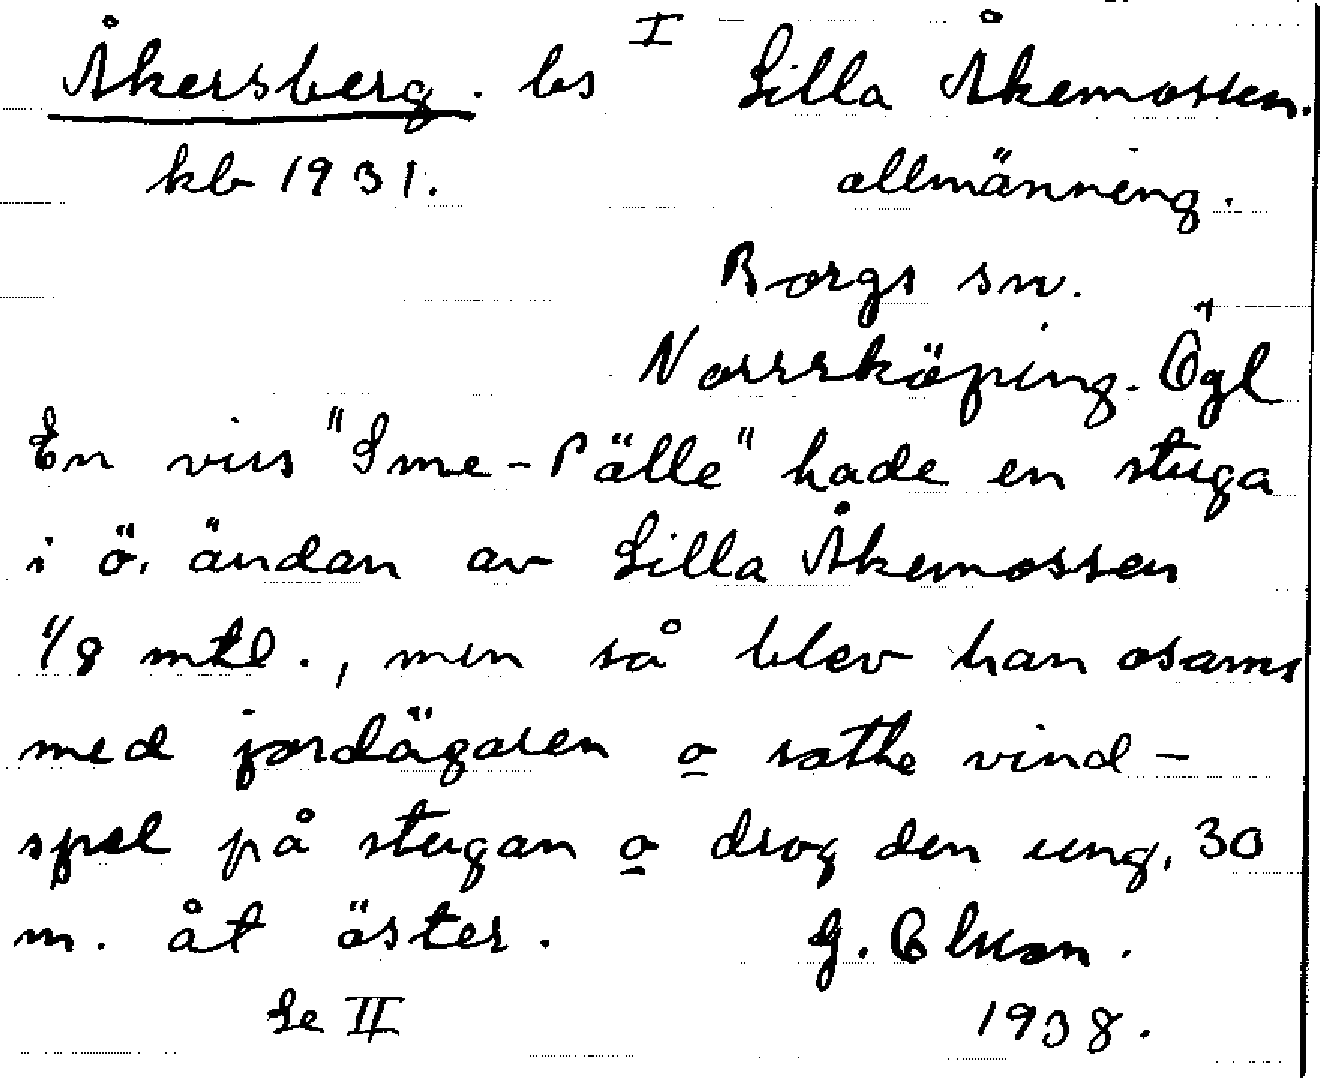 Åkersberg. bs I Lilla Åkemossen.
kb 1931. allmänning.
Borgs sn.
Norrköping. Ögl
En viss "Sme-Pälle" hade en stuga
i ö. ändan av Lilla Åkemossen
1/8 mtl., men så blev han osams
med jordägaren o satte vind-
spel på stugan o drog den ung. 30
m. åt öster. G.
Se II 1938.